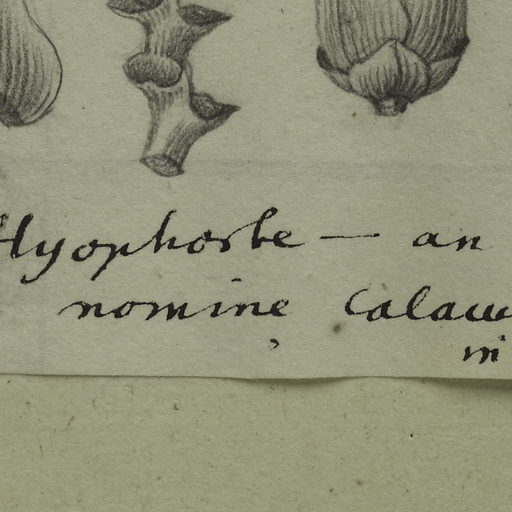 Hyophorbe — an
nomine Calaw
in